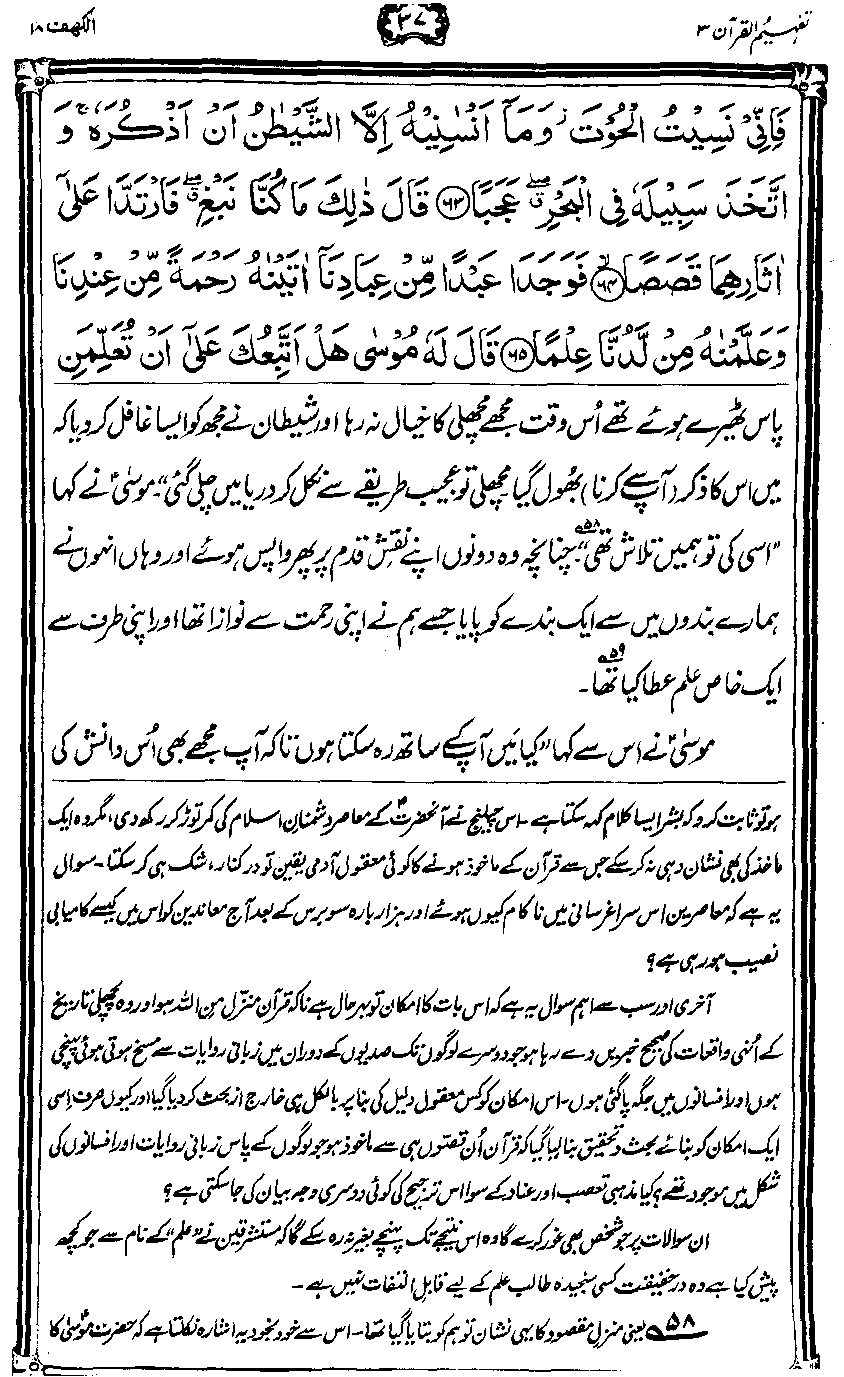 تفہیم القرآن ۳
۳۷
الکہف ۱۸
فَاِنِّیْ نَسِیْتُ الْحُوْتَ ؗ وَمَاۤ اَنْسٰىنِیْهُ اِلَّا الشَّیْطٰنُ اَنْ اَذْكُرَهٗ ۚ وَ
اتَّخَذَ سَبِیْلَهٗ فِی الْبَحْرِ ۖۗ عَجَبًا ﴿۶۳﴾ قَالَ ذٰلِكَ مَا كُنَّا نَبْغِ ۖۗ فَارْتَدَّا عَلٰۤی
اٰثَارِهِمَا قَصَصًا ﴿۶۴﴾ۙ فَوَجَدَا عَبْدًا مِّنْ عِبَادِنَاۤ اٰتَیْنٰهُ رَحْمَةً مِّنْ عِنْدِنَا
وَعَلَّمْنٰهُ مِنْ لَّدُنَّا عِلْمًا ﴿۶۵﴾ قَالَ لَهٗ مُوْسٰی هَلْ اَتَّبِعُكَ عَلٰۤی اَنْ تُعَلِّمَنِ
پاس ٹھیرے ہوئے تھے اُس وقت مجھے مچھلی کا خیال نہ رہا اور شیطان نے مجھ کو ایسا غافل کر دیا کہ
میں اس کا ذکر (آپ سے کرنا) بھُول گیا۔ مچھلی تو عجیب طریقے سے نکل کر دریا میں چلی گئی“۔ موسیٰؑ نے کہا
”اسی کی تو ہمیں تلاش تھی“۔۵۸ چنانچہ وہ دونوں اپنے نقشِ قدم پر پھر واپس ہوئے اور وہاں انہوں نے
ہمارے بندوں میں سے ایک بندے کو پایا جسے ہم نے اپنی رحمت سے نوازا تھا اور اپنی طرف سے
ایک خاص علم عطا کیا تھا۔۵۹
موسیٰؑ نے اس سے کہا ”کیا مَیں آپ کے ساتھ رہ سکتا ہوں تاکہ آپ مجھے بھی اُس دانش کی
ہو تو ثابت کرو کہ بشر ایسا کلام کہہ سکتا ہے۔ اس چیلنج نے آنحضرتؐ کے معاصر دشمنانِ اسلام کی کمر توڑ کر رکھ دی، مگر وہ ایک
ماخذ کی بھی نشان دہی نہ کر سکے جس سے قرآن کے ماخوذ ہونے کا کوئی معقول آدمی یقین تو درکنار، شک ہی کر سکتا۔ سوال
یہ ہے کہ معاصرین اس سراغرسانی میں ناکام کیوں ہوئے اور ہزار بارہ سو برس کے بعد آج معاندین کو اس میں کیسے کامیابی
نصیب ہو رہی ہے؟
آخری اور سب سے اہم سوال یہ ہے کہ اس بات کا امکان تو بہرحال ہے نا کہ قرآن منزّل من اللہ ہو اور وہ پچھلی تاریخ
کے اُنہی واقعات کی صحیح خبریں دے رہا ہو جو دوسرے لوگوں تک صدیوں کے دوران میں زبانی روایات سے مسخ ہوتی ہوئی پہنچی
ہوں اور افسانوں میں جگہ پا گئی ہوں۔ اس امکان کو کس معقول دلیل کی بنا پر بالکل ہی خارج از بحث کر دیا گیا اور کیوں صرف اِسی
ایک امکان کو بنائے بحث و تحقیق بنا لیا گیا کہ قرآن اُن قصّوں ہی سے ماخوذ ہو جو لوگوں کے پاس زبانی روایات اور افسانوں کی
شکل میں موجود تھے؟ کیا مذہبی تعصب اور عناد کے سوا اس ترجیح کی کوئی دوسری وجہ بیان کی جا سکتی ہے؟
ان سوالات پر جو شخص بھی غور کرے گا وہ اس نتیجے تک پہنچے بغیر نہ رہ سکے گا کہ مستشرقین نے ”علم“ کے نام سے جو کچھ
پیش کیا ہے وہ درحقیقت کسی سنجیدہ طالب علم کے لیے قابلِ التفات نہیں ہے۔
۵۸ یعنی منزلِ مقصود کا یہی نشان تو ہم کو بتایا گیا تھا۔ اس سے خود بخود یہ اشارہ نکلتا ہے کہ حضرت موسیٰؑ کا